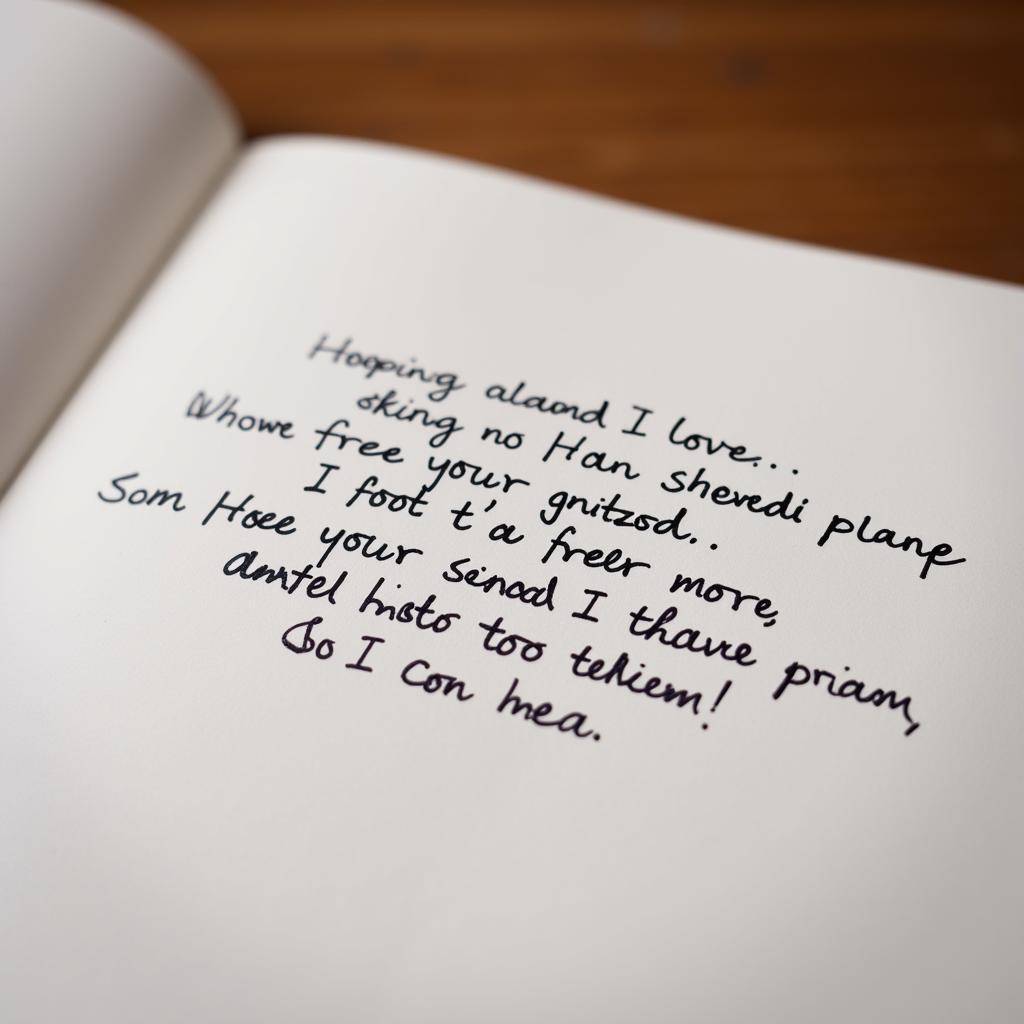 Hooping alaond I love...
oking no Han shevedi planp
Whowe free your gnitzod..
I foot t'a freer more,
Som Hoee your sinod I thavre priam,
too
So I Con hnea.